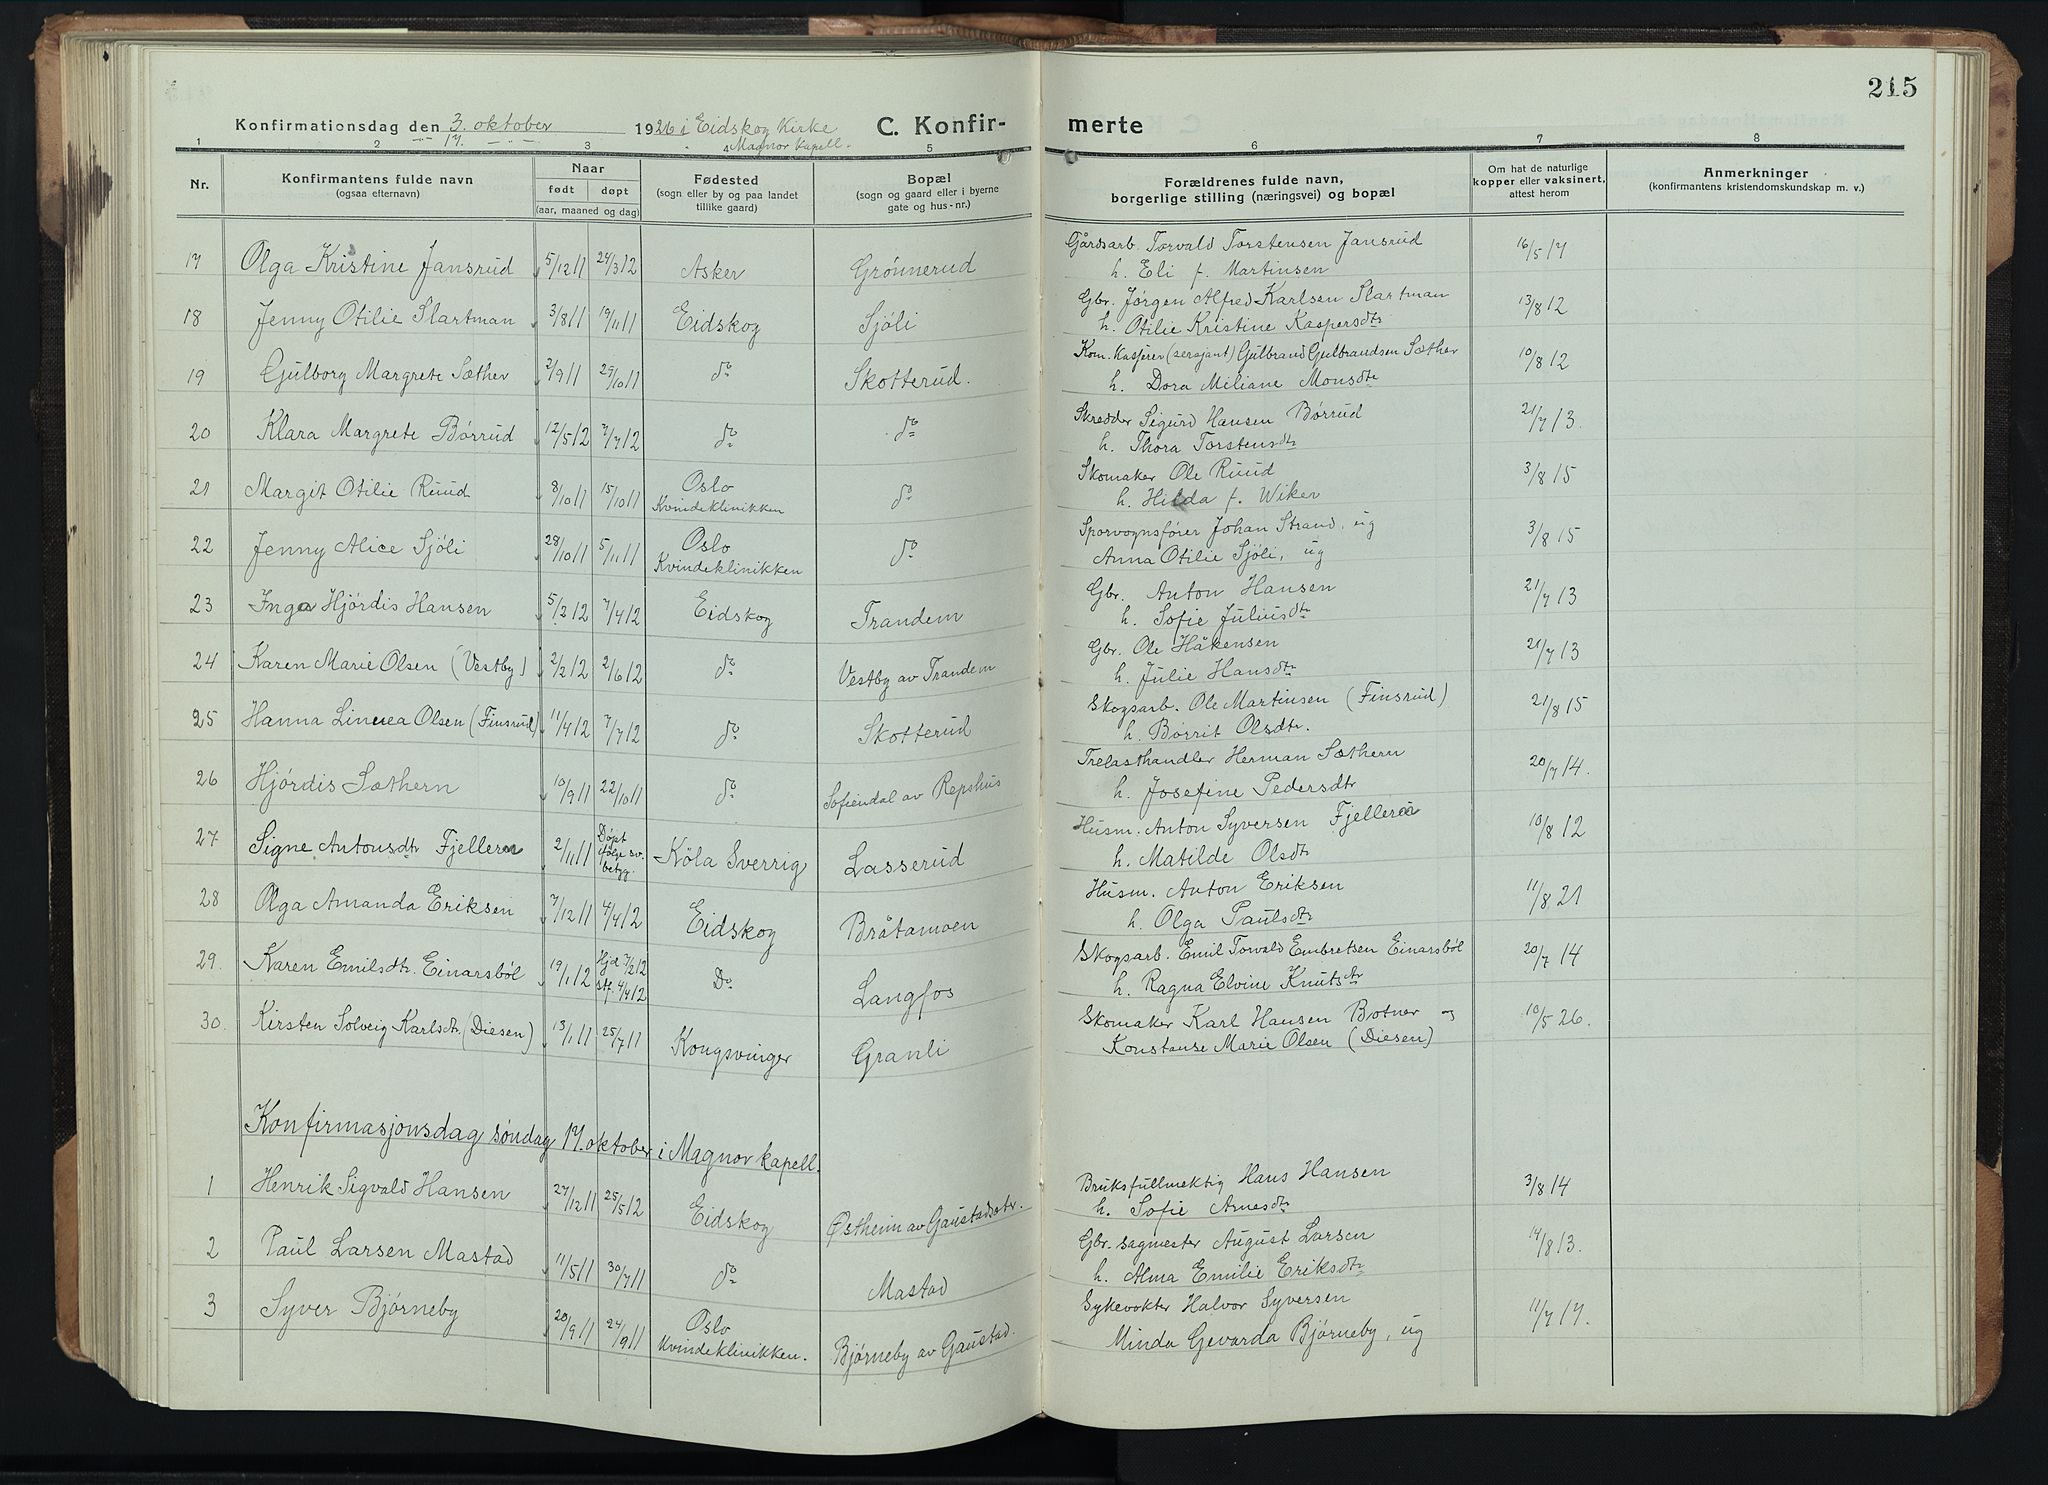 215
Konfirmationsdag den 3. oktober 1926 i Eidskog Kirke C. Konfir- merte
-"- 17. -"- Magnor Kapell.
1 2 3 4 5 6 7 8
Nr. Konfirmantens fulde navn (ogsaa efternavn) Naar født døpt (aar, maaned og dag) Fødested (sogn eller by og paa landet tillike gaard) Bopæl (sogn og gaard eller i byerne gate og hus-nr.) Forældrenes fulde navn, borgerlige stilling (næringsvei) og bopæl Om hat de naturlige kopper eller vaksinert, attest herom Anmerkninger (konfirmantens kristendomskundskap m. v.)
17 Olga Kristine Jansrud 5/12 11 24/3 12 Asker Grönnerud Gårdsarb. Torvald Torstensen Jansrud 16/5 17
h. Eli f. Martinsen
18 Jenny Otilie Slartman 3/8 11 19/11 11 Eidskog Sjöli Gbr. Jörgen Alfred Karlsen Slartman 13/8 12
h. Otilie Kristine Kaspersdtr
19 Gulborg Margrete Sæther 2/9 11 29/10 11 do Skotterud. Kom. Kasserer (sersjant) Gulbrand Gulbrandsen Sæther 10/8 12
h. Dora Miliane Monsdtr
20 Klara Margrete Börrud 12/5 12 7/7 12 do do Skredder Sigurd Hansen Börrud 21/7 13.
h. Thora Torstensdtr
21 Margit Otilie Ruud 8/10 11 15/10 11 Oslo Kvindeklinikken do Skomaker Ole Ruud 3/8 15
h. Hilda f. Wiker
22 Jenny Alice Sjöli 28/10 11 5/11 11 Oslo Kvindeklinikken do Sporvognsfører Johan Strand, ug 3/8 15
Anna Otilie Sjöli, ug
23 Inga Hjördis Hansen 5/2 12 7/4 12 Eidskog Trandem Gbr. Anton Hansen 21/7 13
h. Sofie Juliusdtr
24 Karen Marie Olsen (Vestby) 2/2 12 2/6 12 do Vestby av Trandem Gbr. Ole Håkensen 21/7 13
h. Julie Hansdtr
25 Hanna Linnea Olsen (Finsrud) 11/4 12 7/7 12 do Skotterud Skogsarb. Ole Martinsen (Finsrud) 21/8 15
h. Börrit Olsdtr.
26 Hjördis Sæthern 10/9 11 22/10 11 do Sofiendal av Repshus Trelasthandler Herman Sæthern 20/7 14.
h. Josefine Pedersdtr
27 Signe Antonsdtr Fjellern 2/11 11 Døpt ifølge sv. betyg. Köla Sverrig Lasserud Husm. Anton Syversen 10/8 12
h. Matilde Olsdtr
28 Olga Amanda Eriksen 7/12 11 4/4 12 Eidskog Bråtamoen Husm. Anton Eriksen 11/8 21
h. Olga Paulsdtr
29. Karen Emilsdtr. Einarsböl 19/1 12 Hjd 7/2 12 stf. 4/4 12 Do Langfos Skogsarb. Emil Torvald Embretsen Einarsböl 20/7 14
h. Ragna Elvine Knutsdtr
30. Kirsten Solveig Karlsdtr. (Diesen) 13/1 11 25/7 11 Kongsvinger Granli Skomaker Karl Hansen Botner og 10/5 26.
Konstanse Marie Olsen (Diesen)
Konfirmasjonsdag söndag 17. oktober i Magnor kapell.
1 Henrik Sigvald Hansen 27/12 11 25/5 12 Eidskog Østheim av Gaustadsætr. Bruksfullmektig Hans Hansen 3/8 14
h. Sofie Arnesdtr
2 Paul Larsen Mastad 11/5 11 30/7 11 do Mastad Gbr. sagmester August Larsen 14/8 13.
h. Alma Emilie Eriksdtr
3 Syver Bjørneby 20/9 11 24/9 11 Oslo Kvindeklinikken. Bjørneby av Gaustad. Sykevokter Halvor Syversen 11/7 17.
Minda Gevarda Bjørneby, ug